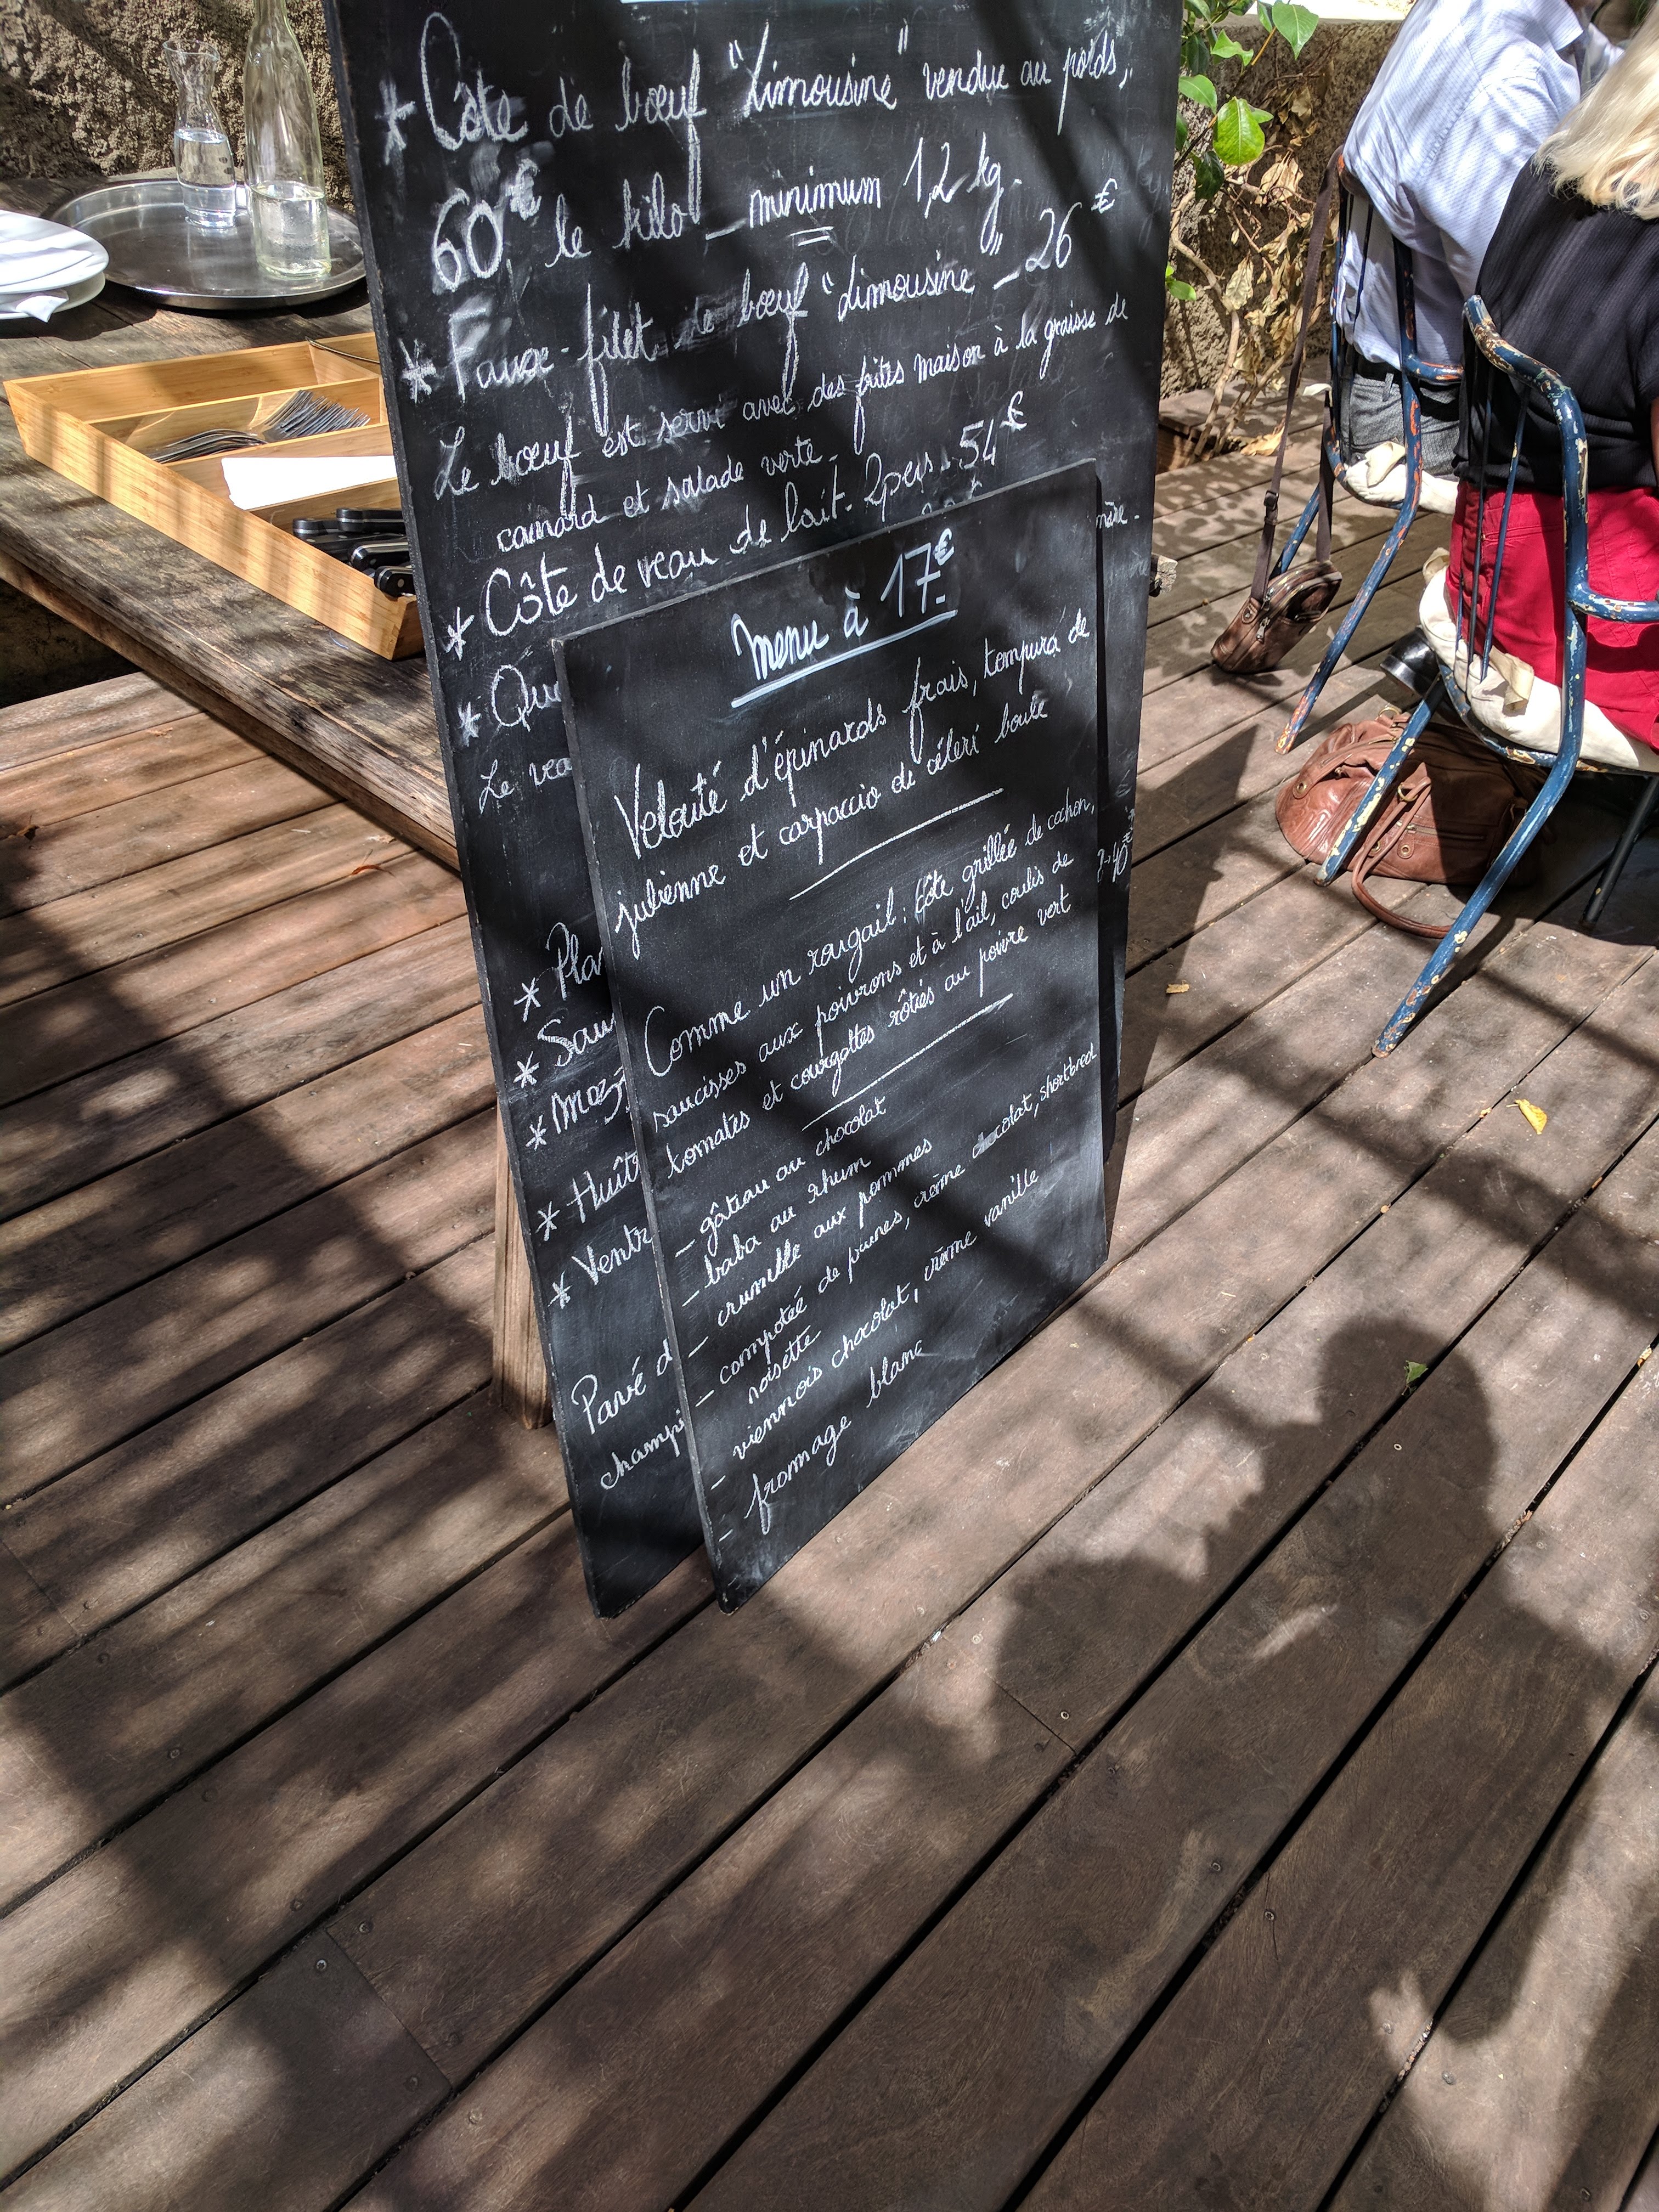 * Côte de bœuf "Limousine" vendue au poids,
60€ le kilo - minimum 1,2 kg.
* Faux-filet de bœuf "Limousine" - 26€
Le bœuf est servi avec des frites maison à la graisse de
canard et salade verte.
* Côte de veau de lait. 2pers. 54€
* Que
Le vea
* Pla
* Sau
* Moz
* Huît
* Ventr
Pavé d
champi
Menu à 17€
Velouté d'épinards frais, tempura de
julienne et carpaccio de céleri boule
Comme un rougail : Côte grillée de cochon,
saucisses aux poivrons et à l'ail, coulis de
tomates et courgettes rôties au poivre vert
- gâteau au chocolat
- baba au rhum
- crumble aux pommes
- compotée de prunes, crème chocolat, shortbread
noisette
- viennois chocolat, crème vanille
- fromage blanc